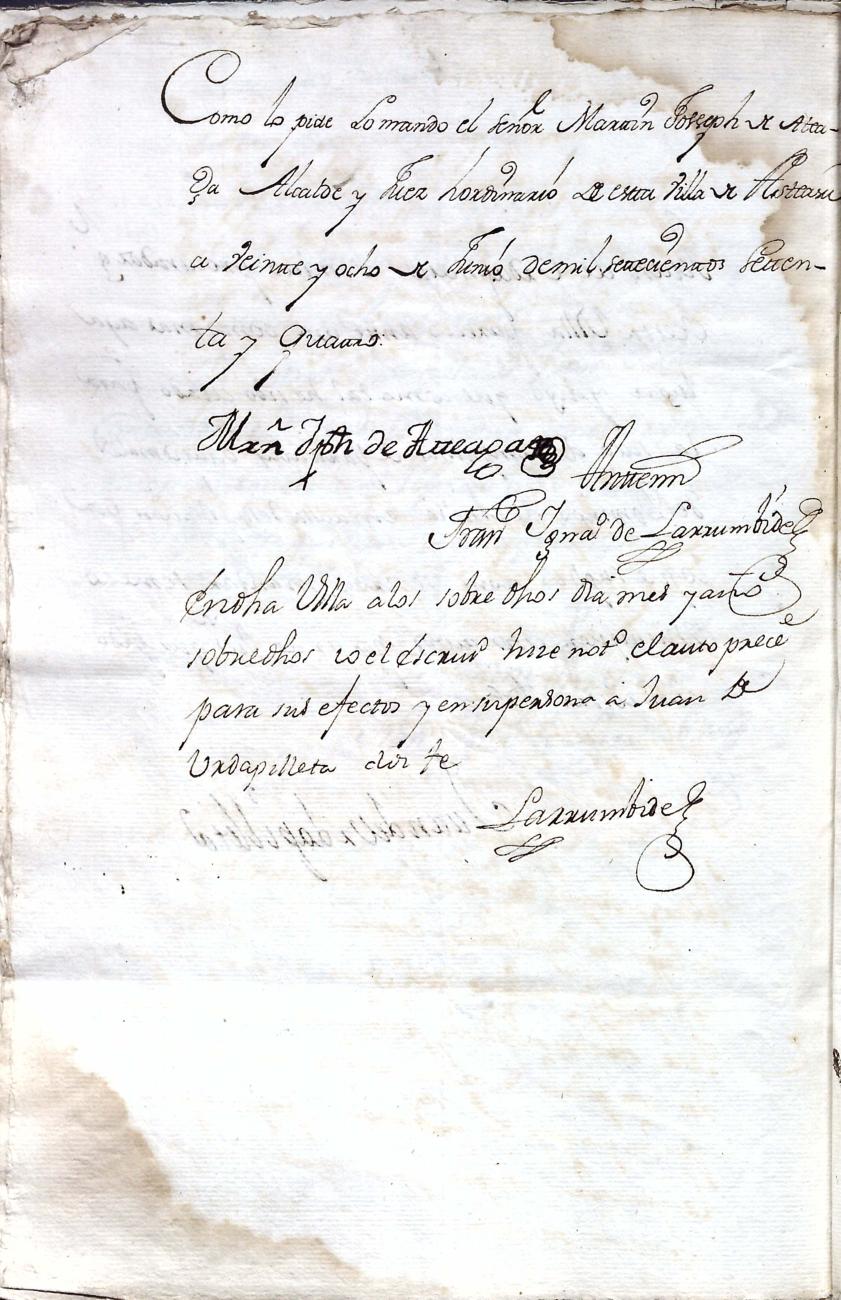 Como lo pide Lo mando el señor Martin Joseph de Atea-
ga Alcalde y Juez hordinario de esta Villa de
a Veinte y ocho de Junio de mil settecientos setten-
ta y quatro.
Mrn Jph de Ateaga
Antemi
Fran Ignaº de Larrumbide
En dha Villa a los sobre dhos dia mes y año
sobre dhos io el Escrivº hize notº el auto prece
para sus efectos y en su persona a Juan de
Urdapilleta doi fe
Larrumbide